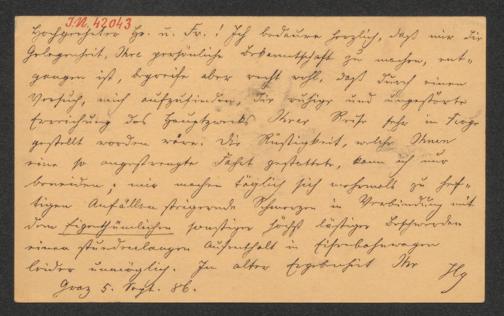 J.N. 42043
Hochgeehrter Hr. u. Fr.! Ich bedaure herzlich, daß mir die
Gelegenheit, Ihre persönliche Bekanntschaft zu machen, ent-
gangen ist, begreife aber recht wohl, daß durch einen
Versuch, mich aufzufinden, die ruhige und ungestörte
Erreichung des Hauptzwecks Ihrer Reise sehr in Frage
gestellt worden wäre. Die Rüstigkeit, welche Ihnen
eine so angestrengte Fahrt gestattete, kann ich nur
beneiden; mir machen täglich sich mehrmals zu hef-
tigen Anfällen steigernde Schmerzen in Verbindung mit
dem Eigenthümlichen sonstiger höchst lästiger Beschwerden
einen stundenlangen Aufenthalt in Eisenbahnwagen
leider unmöglich. In alter Ergebenheit Ihr
Graz 5. Sept. 86.